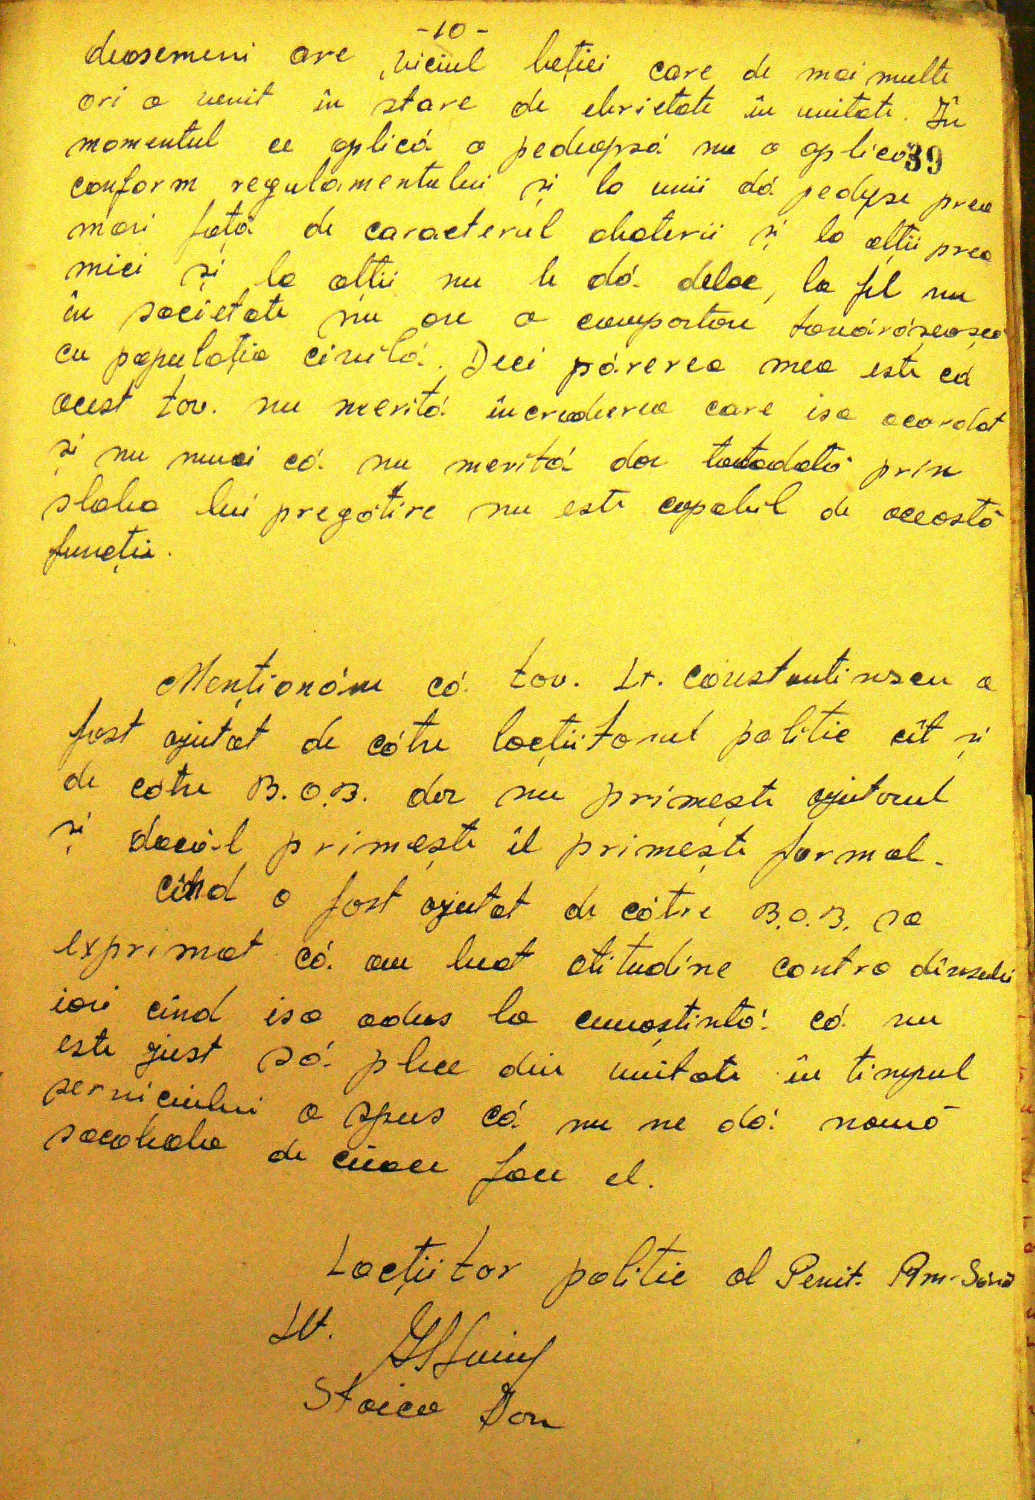 -10-
deosemeni are viciul beției care de mai multe
ori a venit în stare de ebrietate în unitate. În
momentul ce aplică o pedeapsă nu o aplică
39
conform regulamentului și la unii dă pedepse prea
mari față de caracterul abaterii și la alții prea
mici și la alții nu le dă deloc, la fel nu
în societate nu are o comportare tovărășească
cu populația civilă. Deci părerea mea este că
acest tov. nu merită încrederea care isa acordat
și nu numai că nu merită dar totodată prin
slaba lui pregătire nu este capabil de această
funcție.
Menționăm că tov. Lt. Constantinescu a
fost ajutat de către locțiitorul politic cît și
de către B.O.B. dar nu primește ajutorul
și dacă-l primește îl primește formal.
Cînd a fost ajutat de către B.O.B. sa
exprimat că am luat atitudine contra dînsului
iar cînd isa adus la cunoștință că nu
este just să plece din unitate în timpul
serviciului a spus că nu ne dă nouă
socoteala de ceeace face el.
Locțiitor politic al Penit. Rm-Sărat
Lt.
Stoica Dan